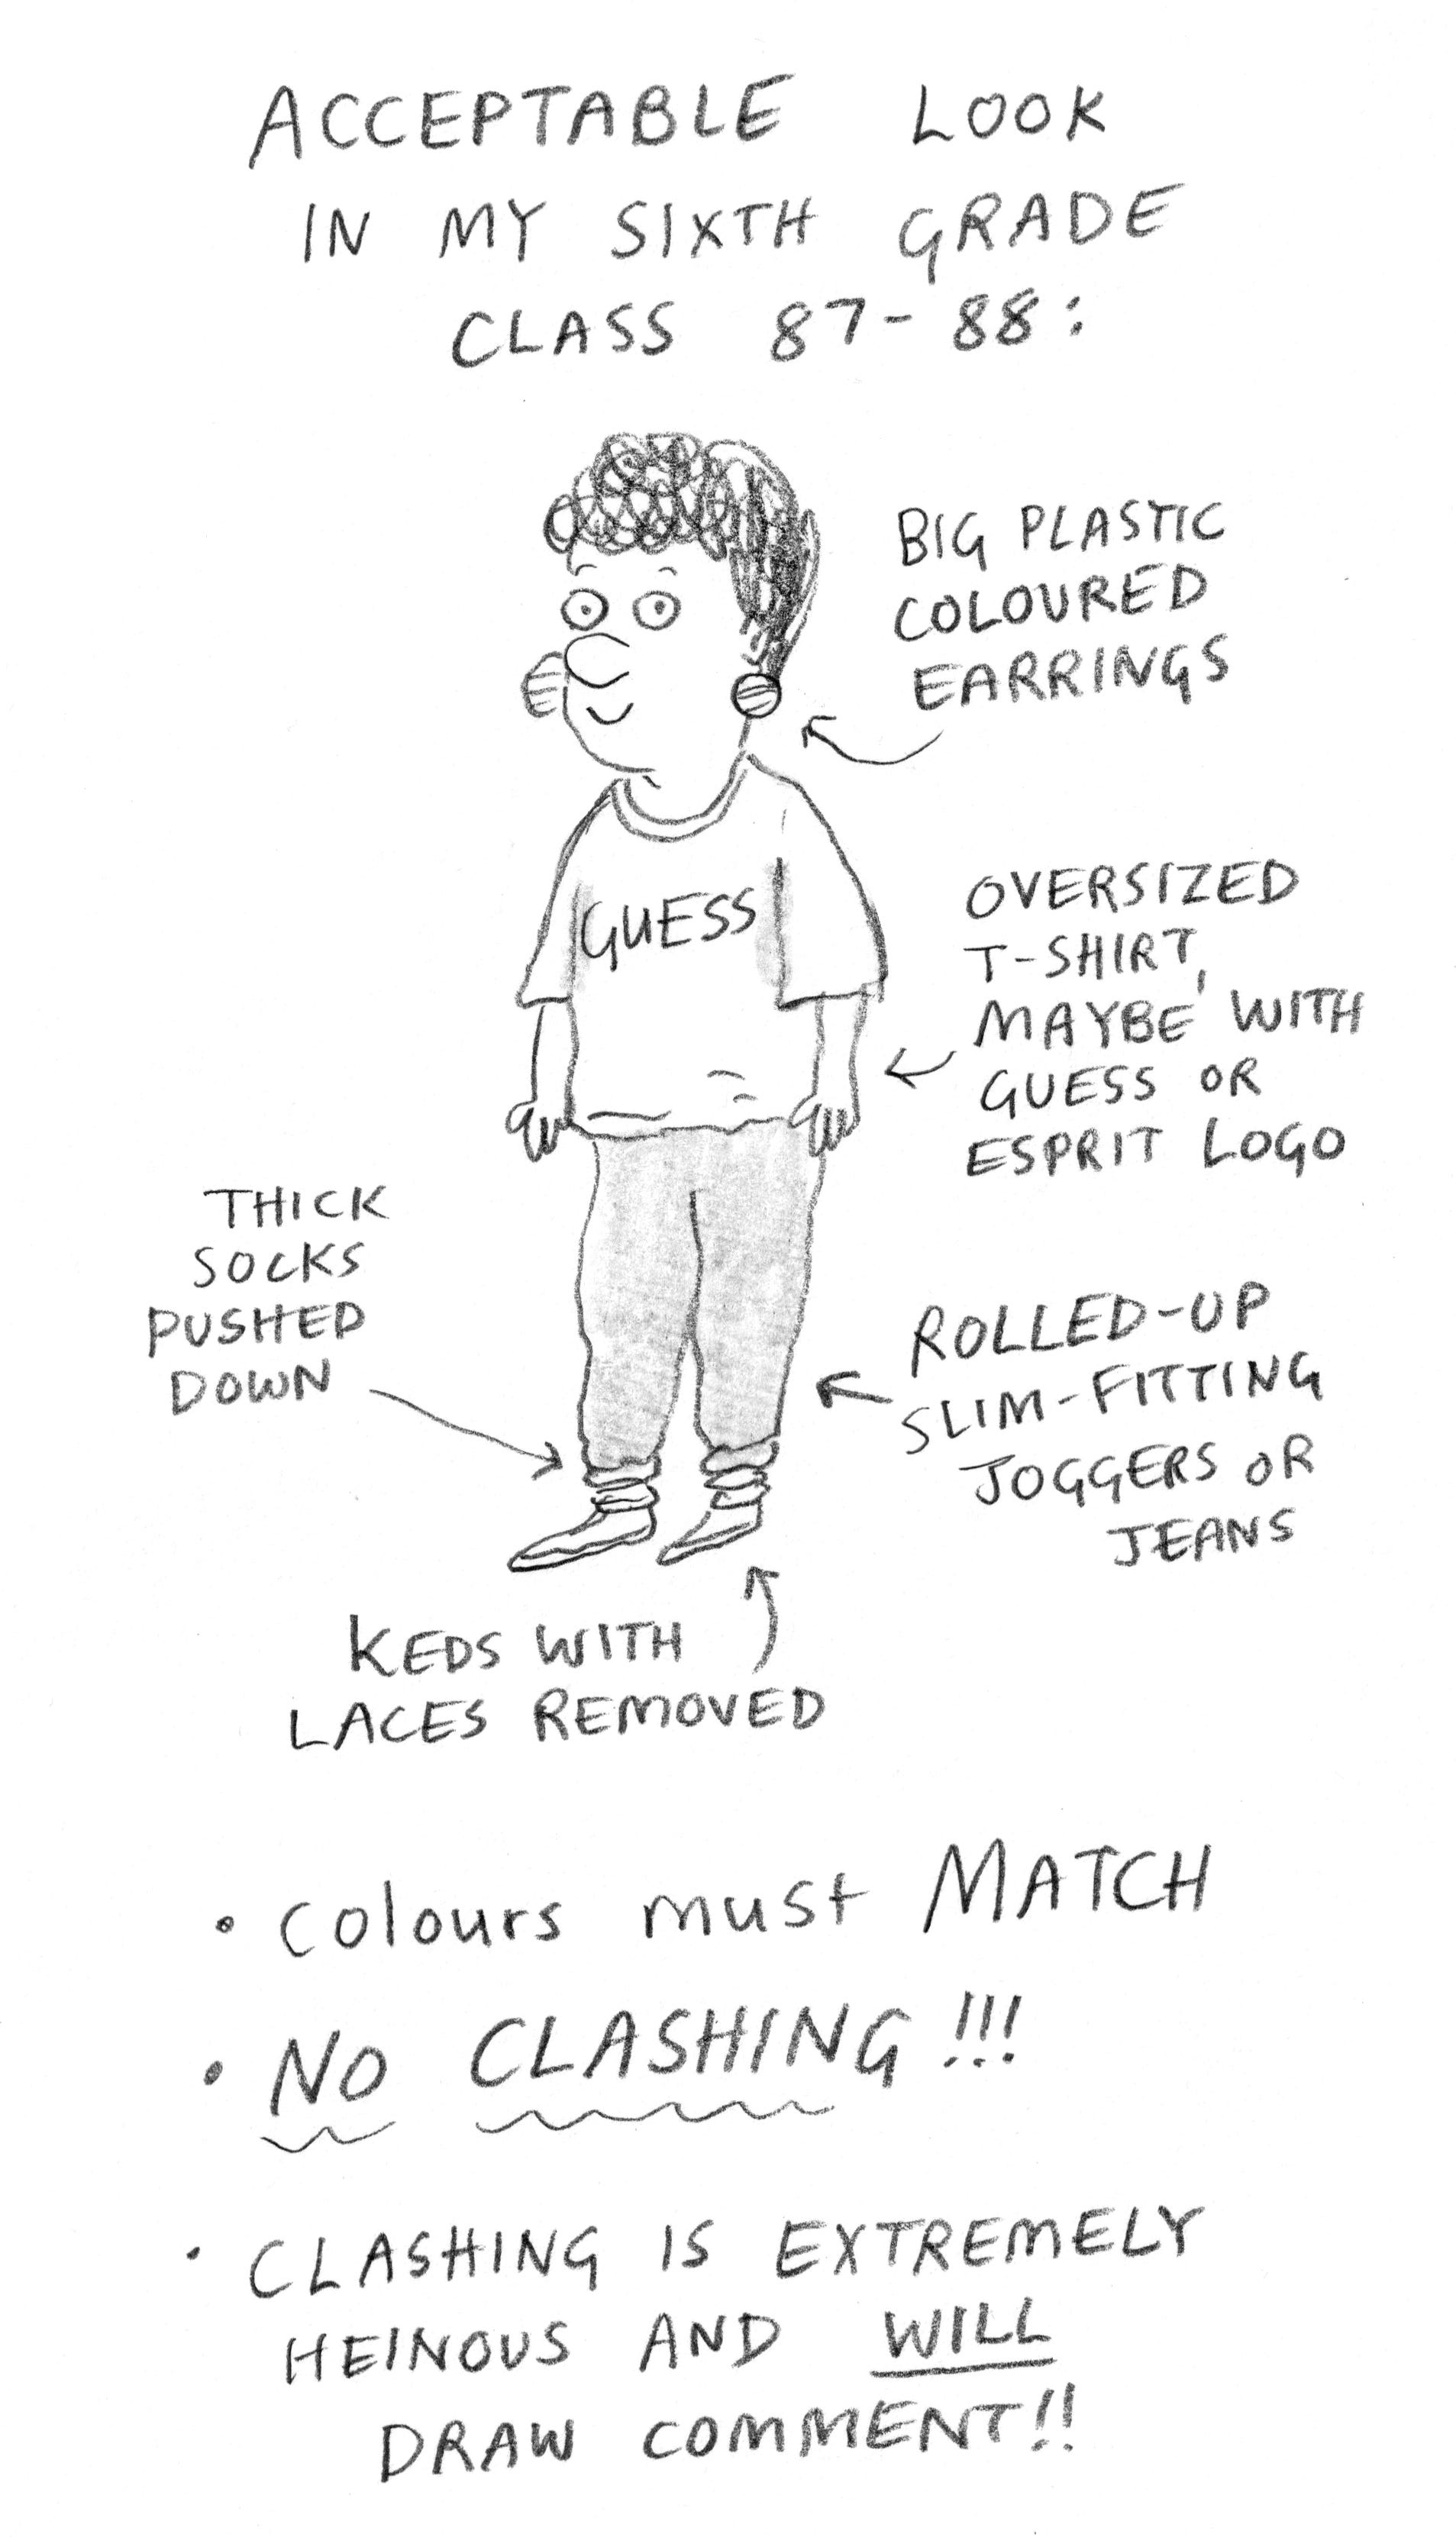 ACCEPTABLE LOOK
IN MY SIXTH GRADE
CLASS 87-88:
BIG PLASTIC
COLOURED
EARRINGS
GUESS
OVERSIZED
T-SHIRT,
MAYBE WITH
GUESS OR
ESPRIT LOGO
THICK
SOCKS
PUSHED
DOWN
ROLLED-UP
SLIM-FITTING
JOGGERS OR
JEANS
KEDS WITH
LACES REMOVED
• Colours must MATCH
• NO CLASHING!!!
• CLASHING IS EXTREMELY
HEINOUS AND WILL
DRAW COMMENT!!